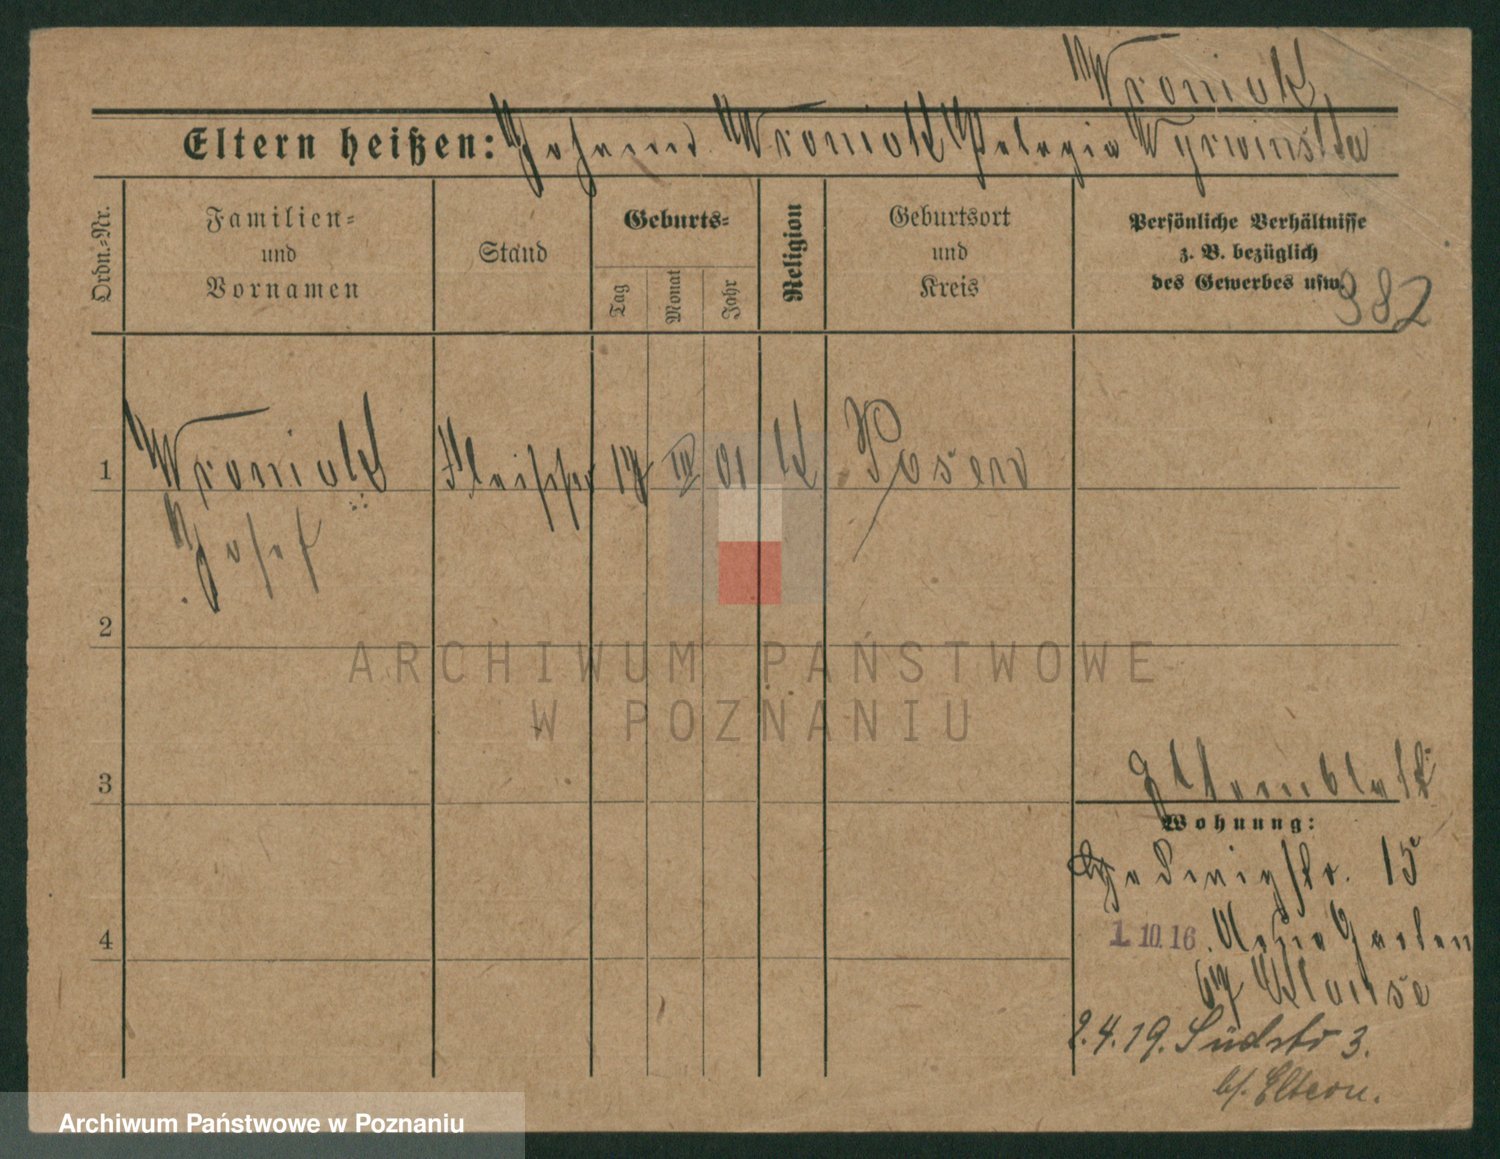 Wroniak
Eltern heißen: Johann Wroniak Pelagia Wyrwinska
Ordn.-Nr.
Familien- und Vornamen
Stand
Geburts-
Tag
Monat
Jahr
Religion
Geburtsort und Kreis
Persönliche Verhältnisse
z. B. bezüglich
des Gewerbes usw.
382
1 Wroniak Fleischer 17 III 01 K Posen
Josef
2
ARCHIWUM PAŃSTWOWE
W POZNANIU
3
Elternblatt
Wohnung:
Hedwigstr. 15
4
1.10.16.
2.4.19. Südstr 3.
b/. Eltern.
Archiwum Państwowe w Poznaniu